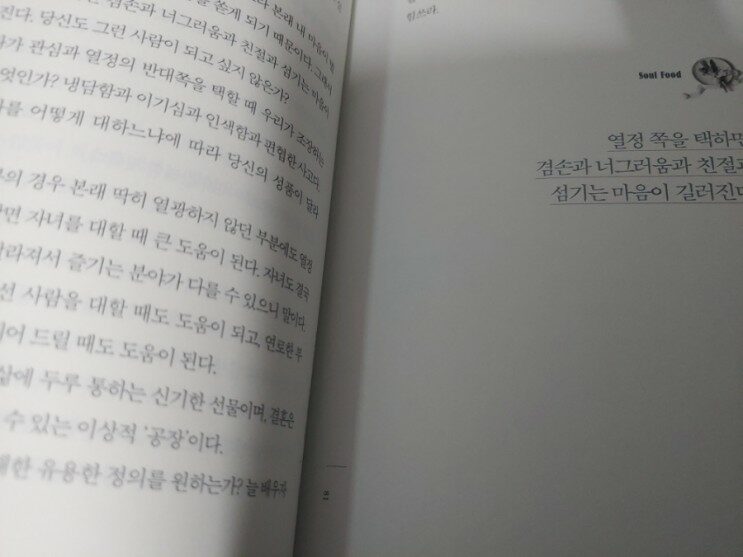 본래 내 마음이
겸손과 너그러움과 친절과 섬기는 마음이
쫓게 되기 때문이다. 그래서
진다. 당신도 그런 사람이 되고 싶지 않은가?
관심과 열정의 반대쪽을 택할 때 우리가 조장하는
엇인가? 냉담함과 이기심과 인색함과 편협한 사고다.
를 어떻게 대하느냐에 따라 당신의 성품이 달라
의 경우 본래 딱히 열광하지 않던 부분에도 열정
면 자녀를 대할 때 큰 도움이 된다. 자녀도 결국
라져서 즐기는 분야가 다를 수 있으니 말이다.
선 사람을 대할 때도 도움이 되고, 연로한 부
어 드릴 때도 도움이 된다.
삶에 두루 통하는 신기한 선물이며, 결혼은
수 있는 이상적 '공장'이다.
한 유용한 정의를 원하는가? 늘 배우자
81
힘쓰라.
Soul Food
열정 쪽을 택하면
겸손과 너그러움과 친절과
섬기는 마음이 길러진다